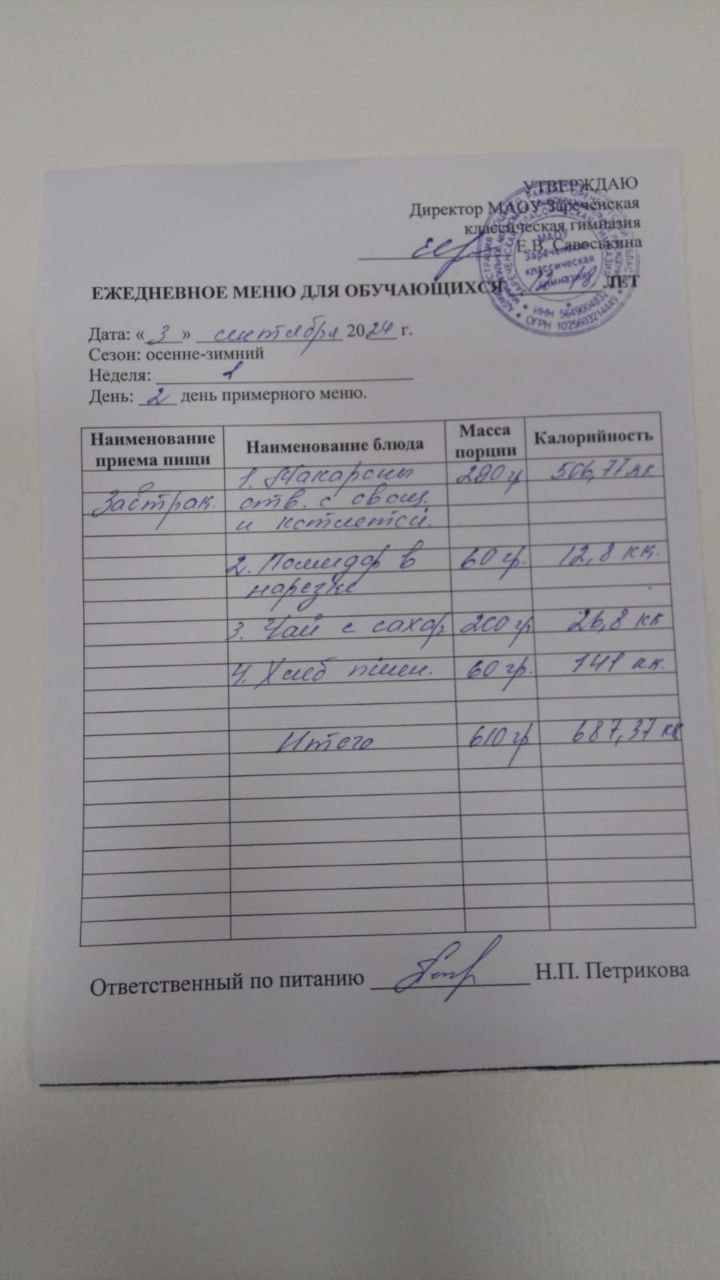 УТВЕРЖДАЮ
Директор МАОУ Зареченская
классическая гимназия
Е.В. Савоськина
ЕЖЕДНЕВНОЕ МЕНЮ ДЛЯ ОБУЧАЮЩИХСЯ 12-18 ЛЕТ
МАОУ Зареченская классическая гимназия
ИНН 5649004832
ОГРН 1025603214449
Дата: « 3 » сентября 2024 г.
Сезон: осенне-зимний
Неделя: 1
День: 2 день примерного меню.
Наименование приема пищи Наименование блюда Масса порции Калорийность
1. Макароны 290 гр 506,77 кк
Завтрак. отв. с овощ.
и котлетой.
2. Помидор в 60 гр. 12,8 кк.
нарезке
3. Чай с сахар 200 гр 26,8 кк
4. Хлеб пшен. 60 гр. 141 кк.
Итого 610 гр 687,37 кк
Ответственный по питанию Н.П. Петрикова